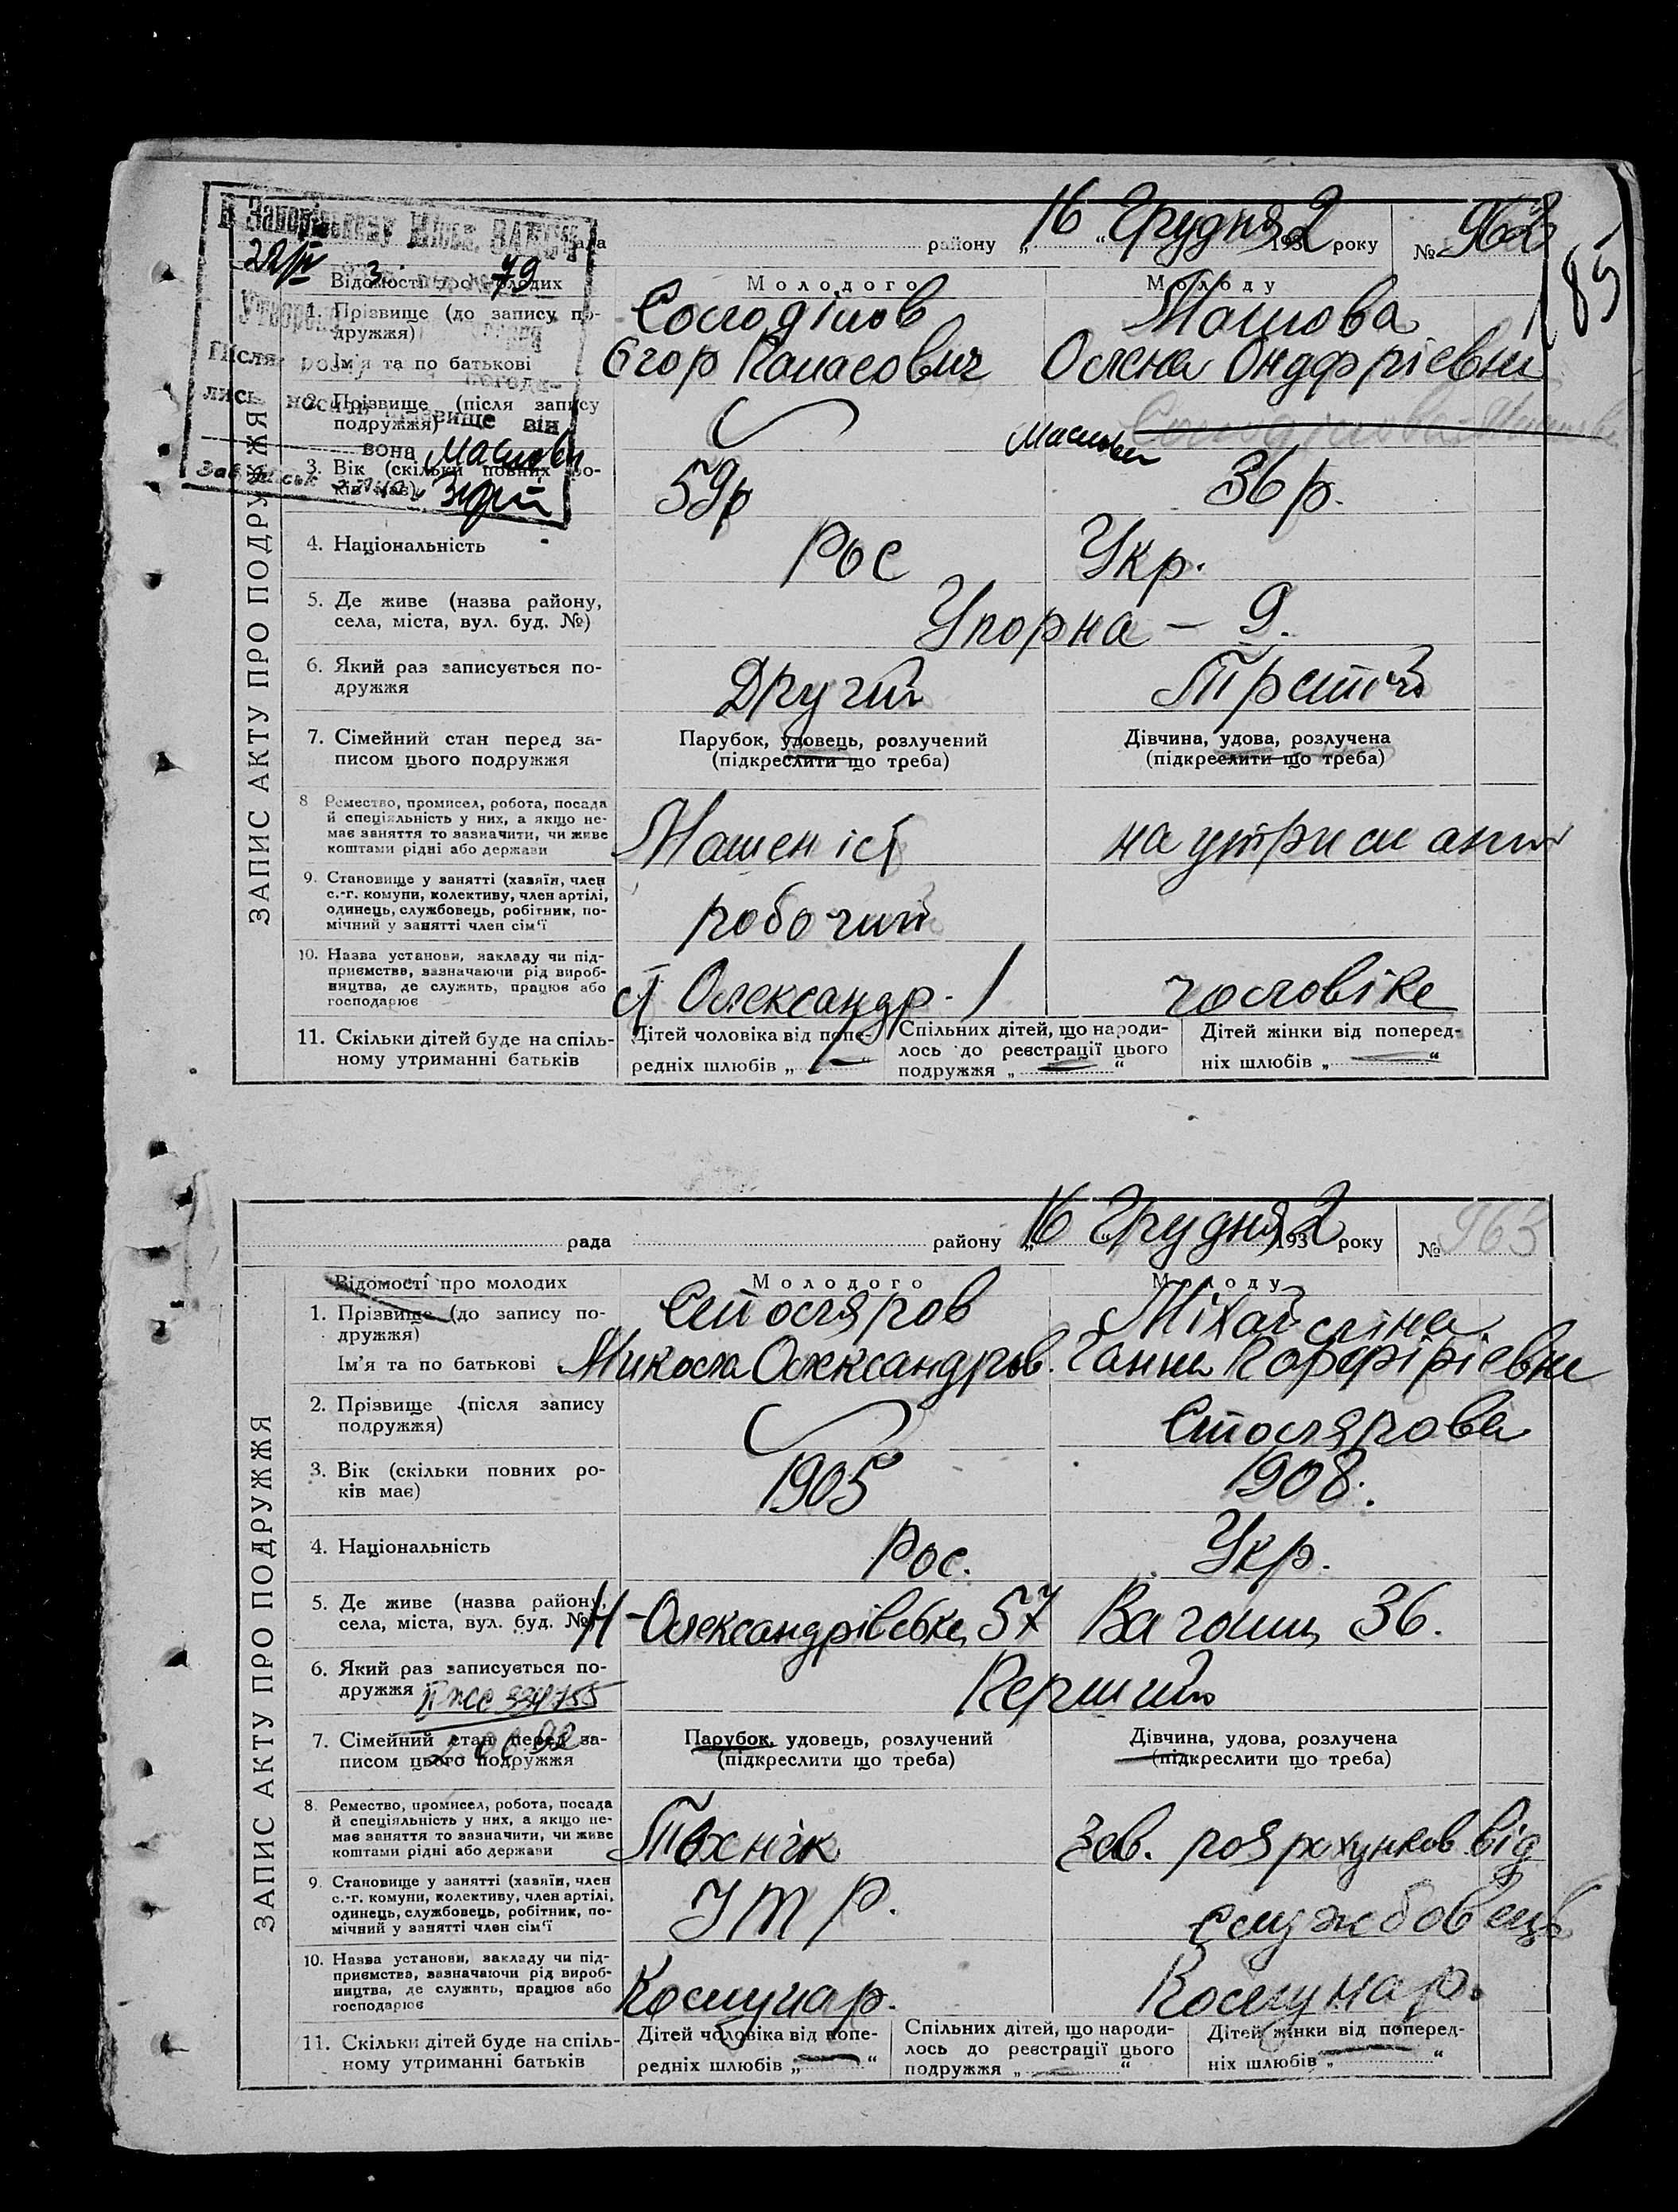 В Запорізькому Міськ. ЗАГСІ
рада району „16“ Грудня 1932 року № 962
185
22/IV 3 79
Відомості про молодих Молодого Молоду
1. Прізвище (до запису по- Солоділов Маслова
дружжя)
Ім'я та по батькові Єгор Панасович Олена Ондфріевна
Після розлу погоди-
лись носити прізвище він
2. Прізвище (після запису
подружжя) Маслова Солоділова-Маслова
вона Маслова
3. Вік (скільки повних ро- 59р 36 р.
ків має)
4. Національність Рос Укр.
5. Де живе (назва району, Упорна – 9.
села, міста, вул. буд. №)
6. Який раз записується по- Другий Третій
дружжя
7. Сімейний стан перед за- Парубок, удовець, розлучений Дівчина, удова, розлучена
писом цього подружжя (підкреслити що треба) (підкреслити що треба)
8 Ремество, промисел, робота, посада
й спеціяльність у них, а якщо не-
має заняття то зазначити, чи живе Машеніст на утриманні
коштами рідні або держави
9. Становище у занятті (хазяїн, член
с.-г. комуни, колективу, член артілі,
одинець, службовець, робітник, по- робочий
мічний у занятті член сім'ї
10. Назва установи, закладу чи під-
приємства, вазначаючи рід вироб-
ництва, де служить, працює або ст Олександр. I чоловіка
господарює
11. Скільки дітей буде на спіль- Дітей чоловіка від попе- Спільних дітей, що народи- Дітей жінки від поперед-
ному утриманні батьків редніх шлюбів „—“ лось до реєстрації цього ніх шлюбів „—“
подружжя „—“
ЗАПИС АКТУ ПРО ПОДРУЖЖЯ
рада району „16 Грудня 1932 року № 963
Відомості про молодих Молодого Молоду
1. Прізвище (до запису по- Столяров Міхайліна
дружжя)
Ім'я та по батькові Микола Олександров. Ганна Порфіріевна
2. Прізвище (після запису Столярова
подружжя)
3. Вік (скільки повних ро- 1905 1908.
ків має)
4. Національність Рос. Укр.
5. Де живе (назва району, Н-Олександрівська, 57 36.
села, міста, вул. буд. №)
6. Який раз записується по- Перший
дружжя
7. Сімейний стан перед за- Парубок, удовець, розлучений Дівчина, удова, розлучена
писом цього подружжя (підкреслити що треба) (підкреслити що треба)
8. Ремество, промисел, робота, посада
й спеціяльність у них, а якщо не-
має заняття то зазначити, чи живе Технік Зав. розрахунков від
коштами рідні або держави
9. Становище у занятті (хазяїн, член
с.-г. комуни, колективу, член артілі,
одинець, службовець, робітник, по- ІТР. службовець
мічний у занятті член сім'ї
10. Назва установи, закладу чи під-
приємства, вазначаючи рід вироб-
ництва, де служить, працює або Комунар. Комунар.
господарює
11. Скільки дітей буде на спіль- Дітей чоловіка від попе- Спільних дітей, що народи- Дітей жінки від поперед-
ному утриманні батьків редніх шлюбів „—“ лось до реєстрації цього ніх шлюбів „—“
подружжя „—“
ЗАПИС АКТУ ПРО ПОДРУЖЖЯ